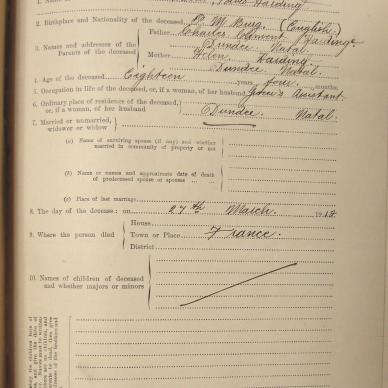 1. Name Harding
2. Birthplace and Nationality of the deceased, P. M. Burg. (English)
3. Names and addresses of the Parents of the deceased
Father Charles Clement Harding.
Dundee Natal.
Mother Helen Harding
Dundee Natal.
4. Age of the deceased Eighteen years four months.
5. Occupation in life of the deceased, or, if a woman, of her husband Assistant.
6. Ordinary place of residence of the deceased, or, if a woman, of her husband
Dundee Natal.
7. Married or unmarried, widower or widow
(a) Name of surviving spouse (if any) and whether married in community of property or not
(b) Name or names and approximate date of death of predeceased spouse or spouses
(c) Place of last marriage
8. The day of the decease : on 27th March. 191
9. Where the person died
House
Town or Place France.
District
10. Names of children of deceased and whether majors or minors